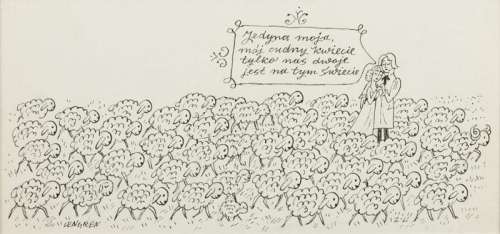 Jedyna moja,
mój cudny kwiecie
tylko nas dwoje
jest na tym świecie
LENGREN